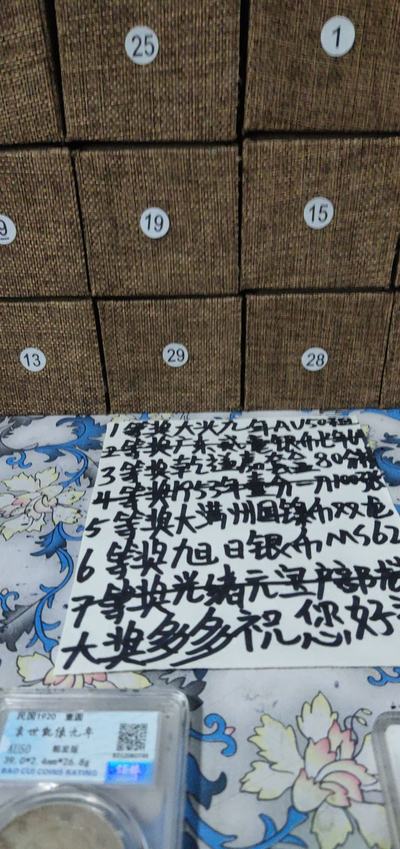 25
1
9
19
15
13
29
28
1等奖大头九年AU50
2等奖广东
3等奖乾道 80分
4等奖1953年壹分一刀100张
5等奖大满州国镍币双龙
6等奖旭日银币MS62
7等奖光绪元宝户部
大奖多多祝您好
民国1920 壹圆
袁世凯像九年
AU50
39.0*2.4mm*26.8g
BAO CUI COINS RATING